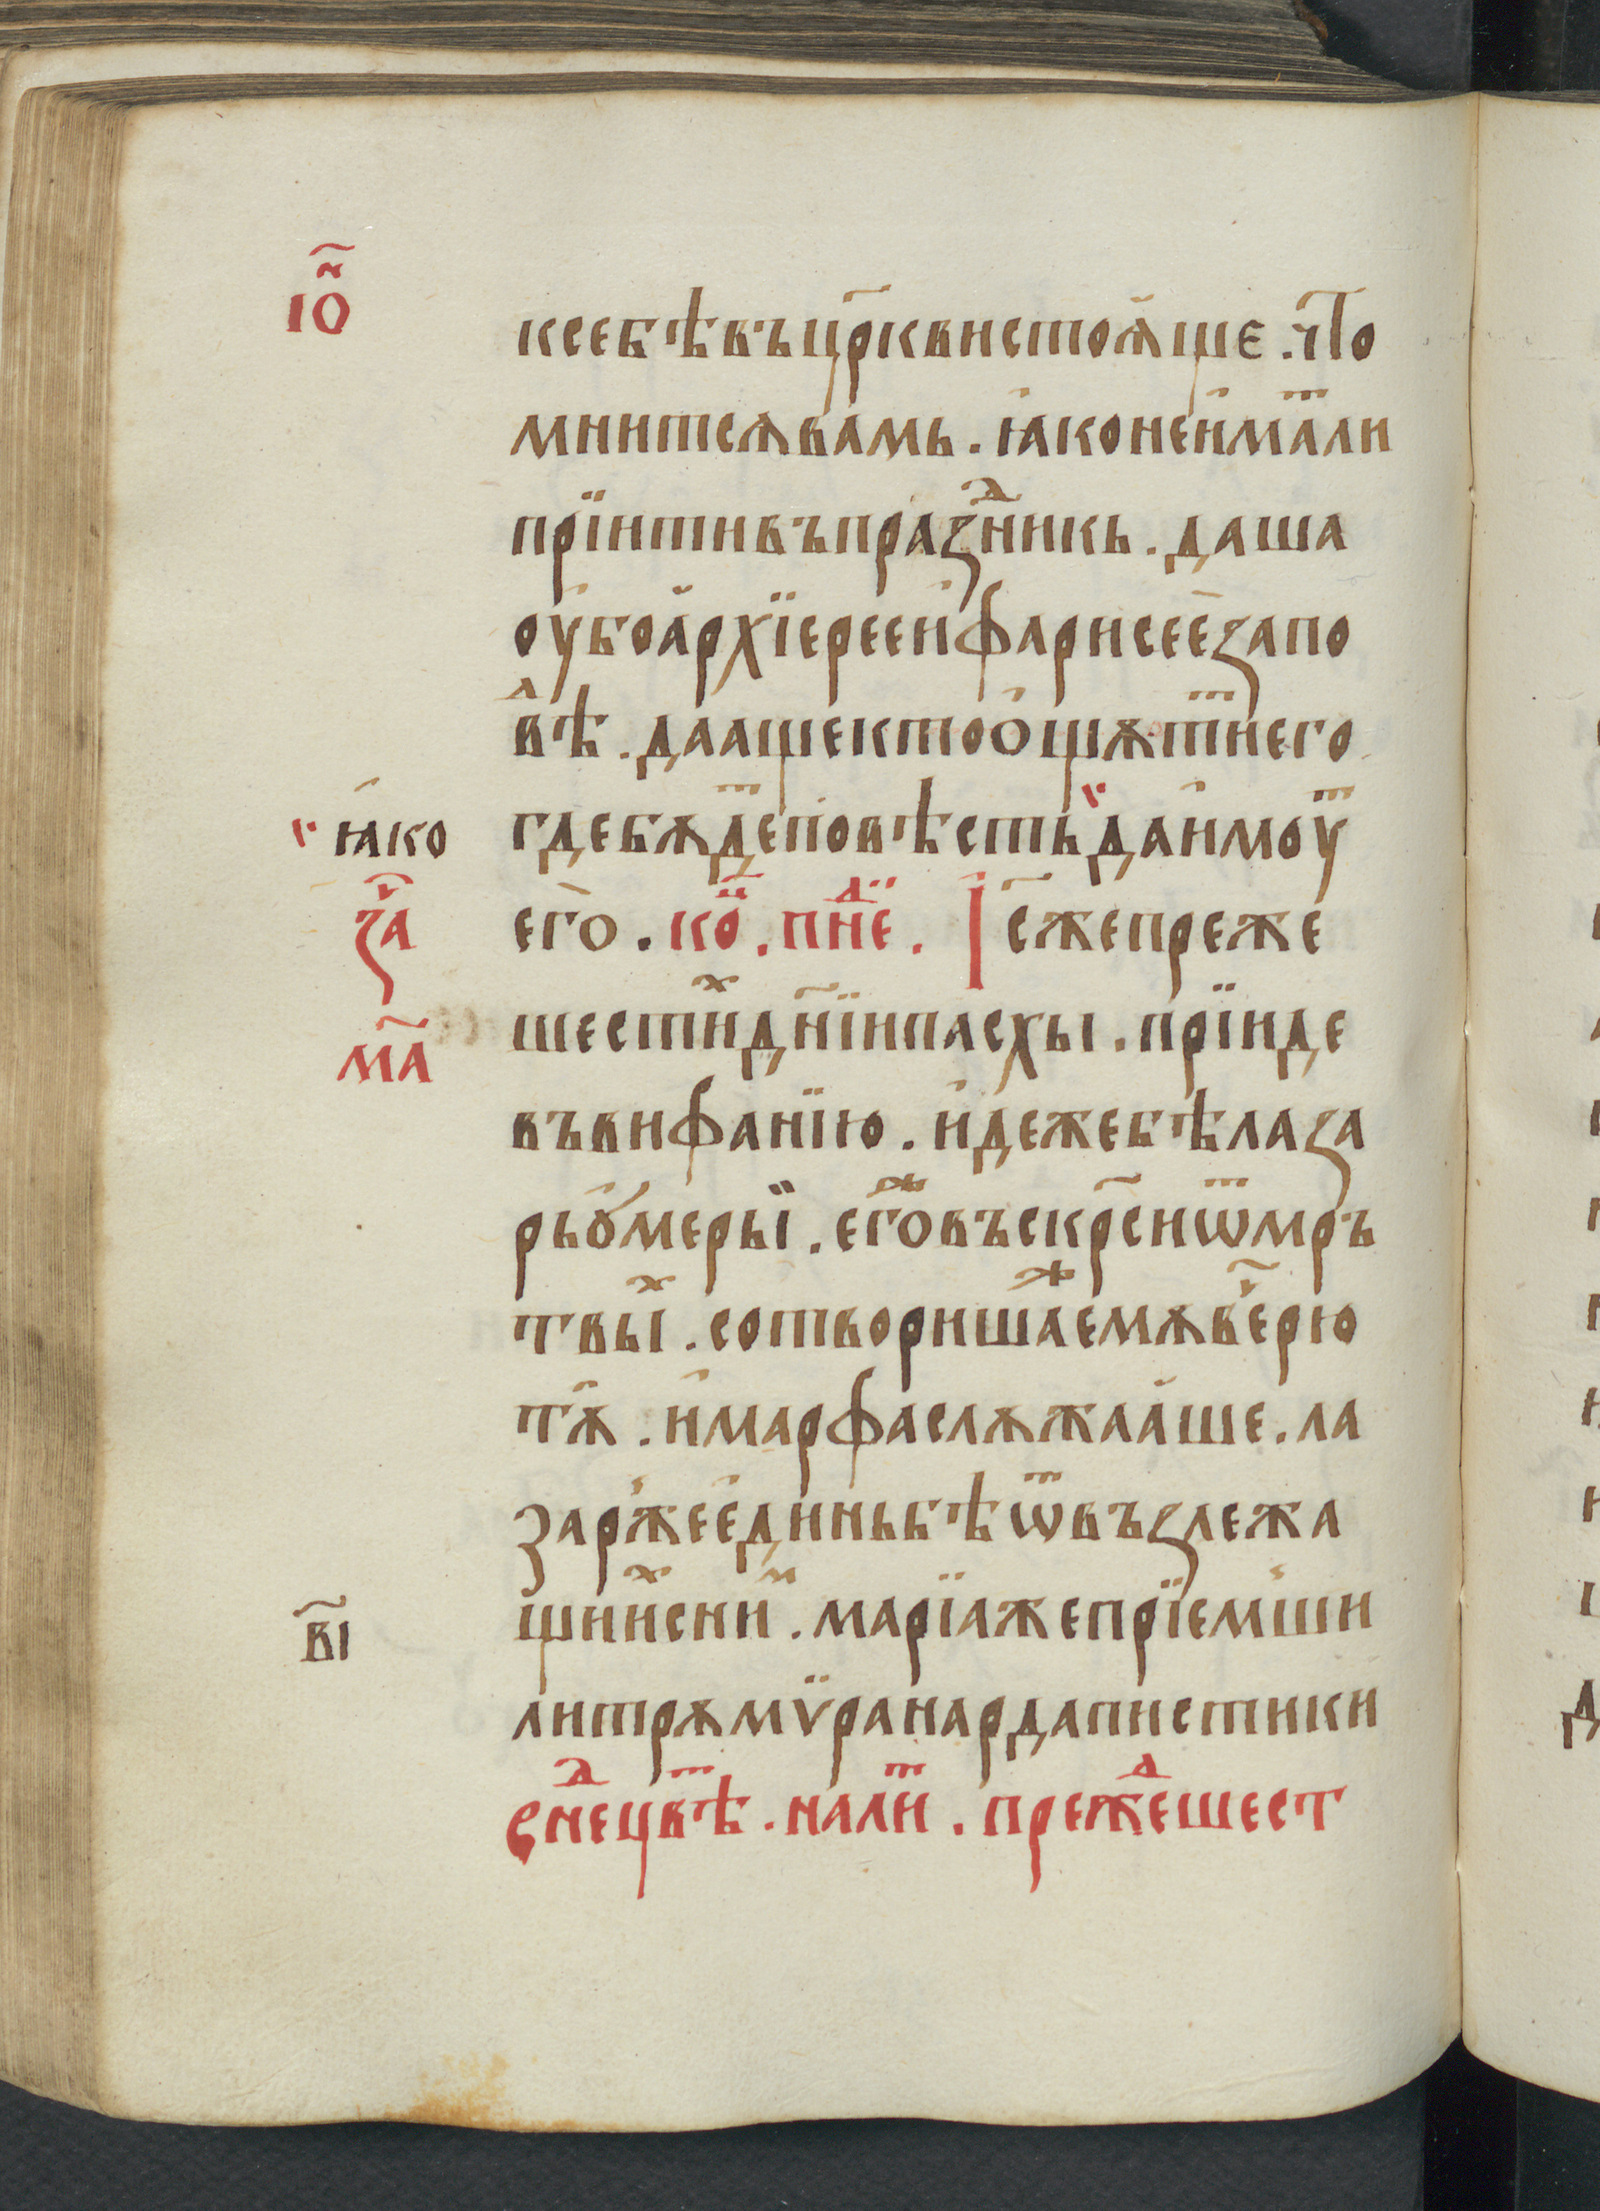 і҃ѡ
ксебѣвъцр҃квистоѧ́ще . что̀
мнитсѧва́мь . ꙗ́конеи́мат̾ли
прїитивъпразⷣникь . даша
оу҆боа҆рхїерееи҆фарисеѐзапо
вⷣѣ . даащектоощꙋтⷮи҆него
гдебѫдеⷮповѣсть да и҆мꙋⷮ
ꙗ҆ко
его̀ . ко҃ . пнⷣе . І с҃ежепреже
за҃ч
м҃а
шестиⷯдн҃їипасхы . прїиде
въвифанїю . и҆дежебѣлаза
рьꙋ҆мерыи . егоⷤвъскр҃сиѿмръ
твыⷯ . сотворишаⷤемѫвече҃рю
тꙋ . и҆марфаслѫжааше . ла
заржееди́ньбѣѿвъзлежа
щиⷯснимъ . марїажепрїемши
в҃і
литрѫмѵранардапистики
ꙋнеⷣцвⷮѣ . налиⷮ . преⷤдешест